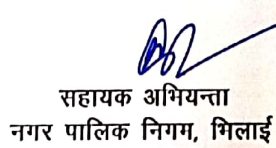 सहायक अभियन्ता
नगर पालिक निगम, भिलाई